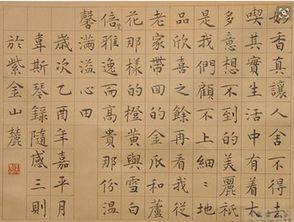 香真讓人舍不得去
喫其實生活中有着太
多意想不到的美麗祇
是我們顧不上細細地
品欣喜之餘再看我從
老家帶的和蘆
花那樣的橙黃與雪白
倍雅逸而高貴那份温
馨滿溢心田
歲次乙酉年嘉平月
韋斯琴錄隨感三則
於紫金山麓